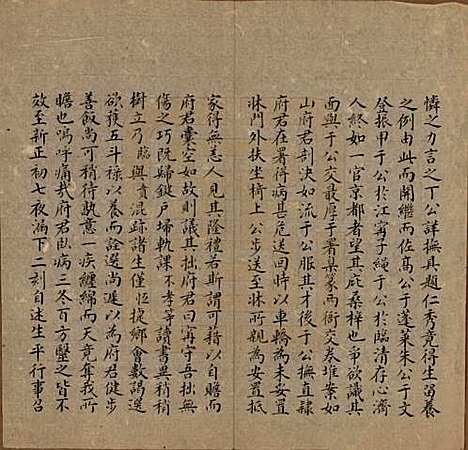 憐之力言之丁公詳撫具題仁秀竟得生留養
之例由此而開繼而佐高公于蓬萊朱公于文
登振甲于公於江寗子繩于公於臨清存心濟
人終如一官京都者望其庇桑梓也爭欲識其
面與于公交最厚于署臬篆兩衙交卷堆案如
山府君剖決如流于公服其才後于公撫直隸
府君在署得病甚危送回時以車轎為未安置
牀門外扶坐椅上公步送至牀所親為安置抵
家得無恙人見其隆禮若斯謂可藉以自贍而
府君橐空如故則議其拙府君曰寗守吾拙無
傷之巧既歸鍵戸埽軌課不孝等讀書與稍稍
樹立乃臨與賁混跡諸生僅恒捷鄉會數謁選
欲獲五斗祿以養而詮選尚遲以為府君健步
善飯尚可稍待孰意一疾纏綿而天竟奪我所
瞻也嗚呼痛哉府君臥病三冬百方醫之皆不
效至新正初七夜漏下二刻自述生平行事召